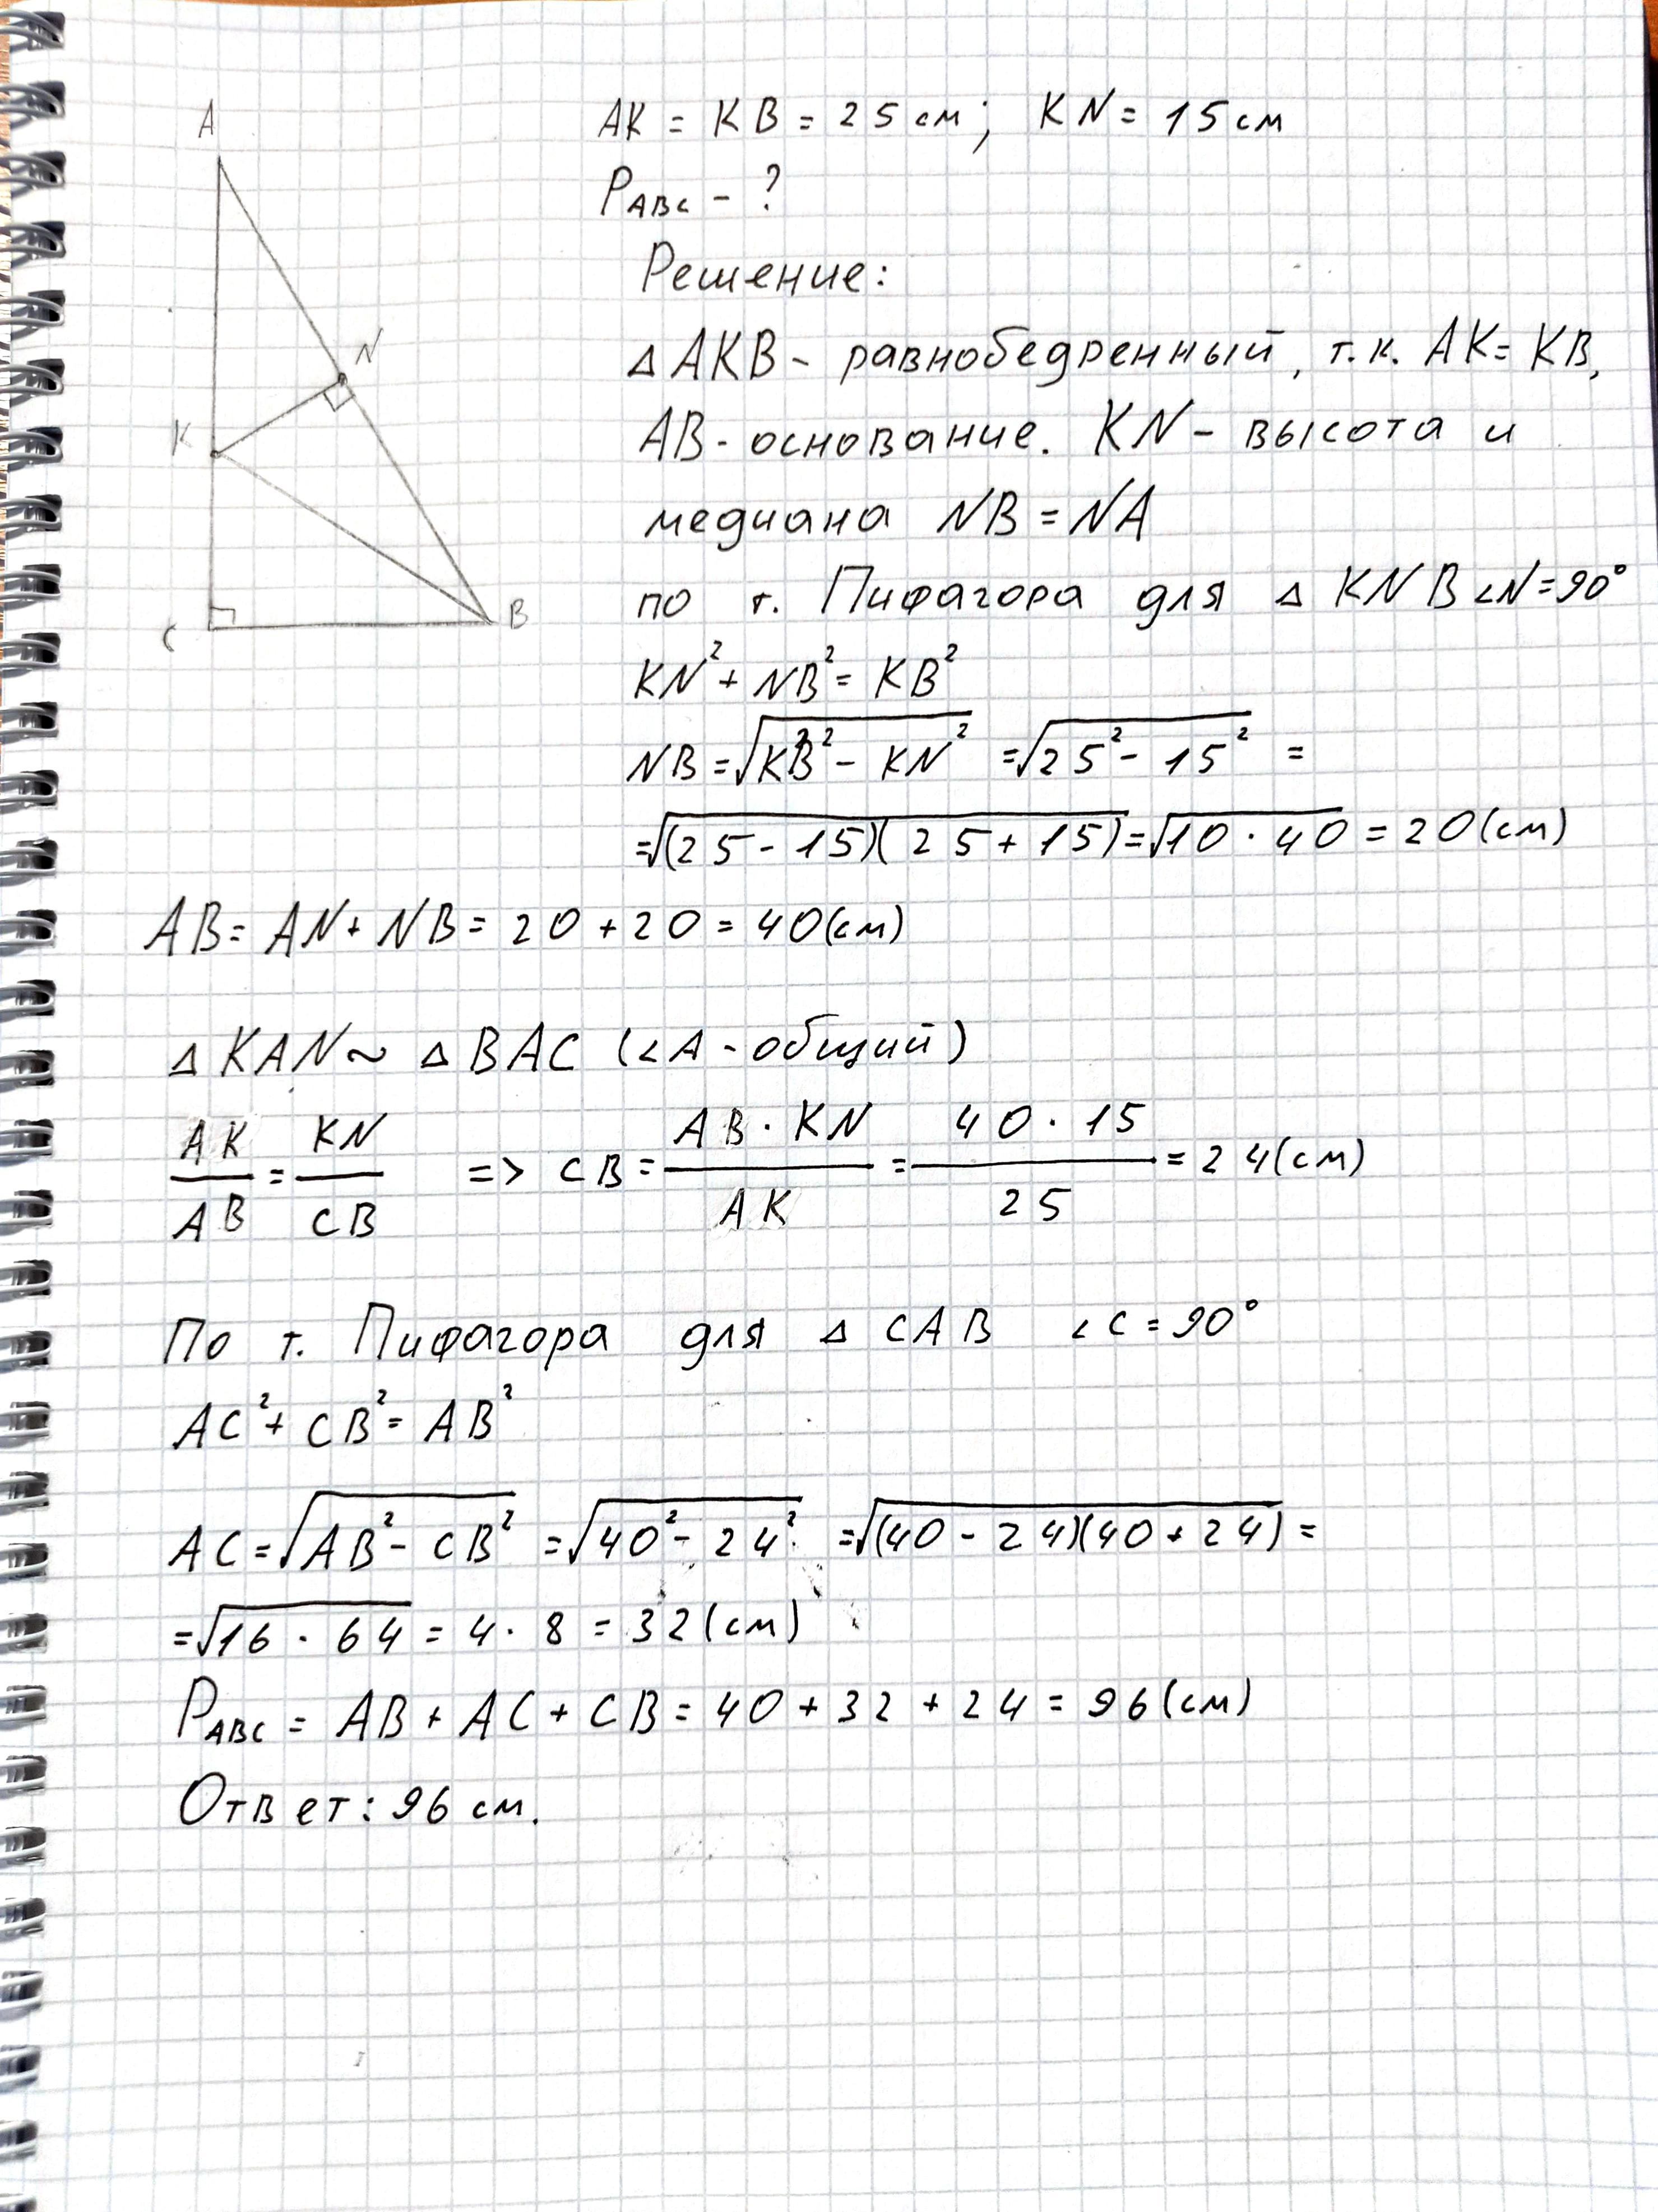 A
N
K
C
B
AK = KB = 25 см; KN = 15 см
P_ABC - ?
Решение:
△ AKB - равнобедренный, т.к. AK = KB,
AB - основание. KN - высота и
медиана NB = NA
по т. Пифагора для △ KNB ∠N = 90°
KN² + NB² = KB²
NB = √(KB² - KN²) = √(25² - 15²) =
= √((25 - 15)(25 + 15)) = √(10 · 40) = 20 (см)
AB = AN + NB = 20 + 20 = 40 (см)
△ KAN ~ △ BAC (∠A - общий)
AK/AB = KN/CB => CB = (AB · KN)/AK = (40 · 15)/25 = 24 (см)
По т. Пифагора для △ CAB ∠C = 90°
AC² + CB² = AB²
AC = √(AB² - CB²) = √(40² - 24²) = √((40 - 24)(40 + 24)) =
= √(16 · 64) = 4 · 8 = 32 (см)
P_ABC = AB + AC + CB = 40 + 32 + 24 = 96 (см)
Ответ: 96 см.